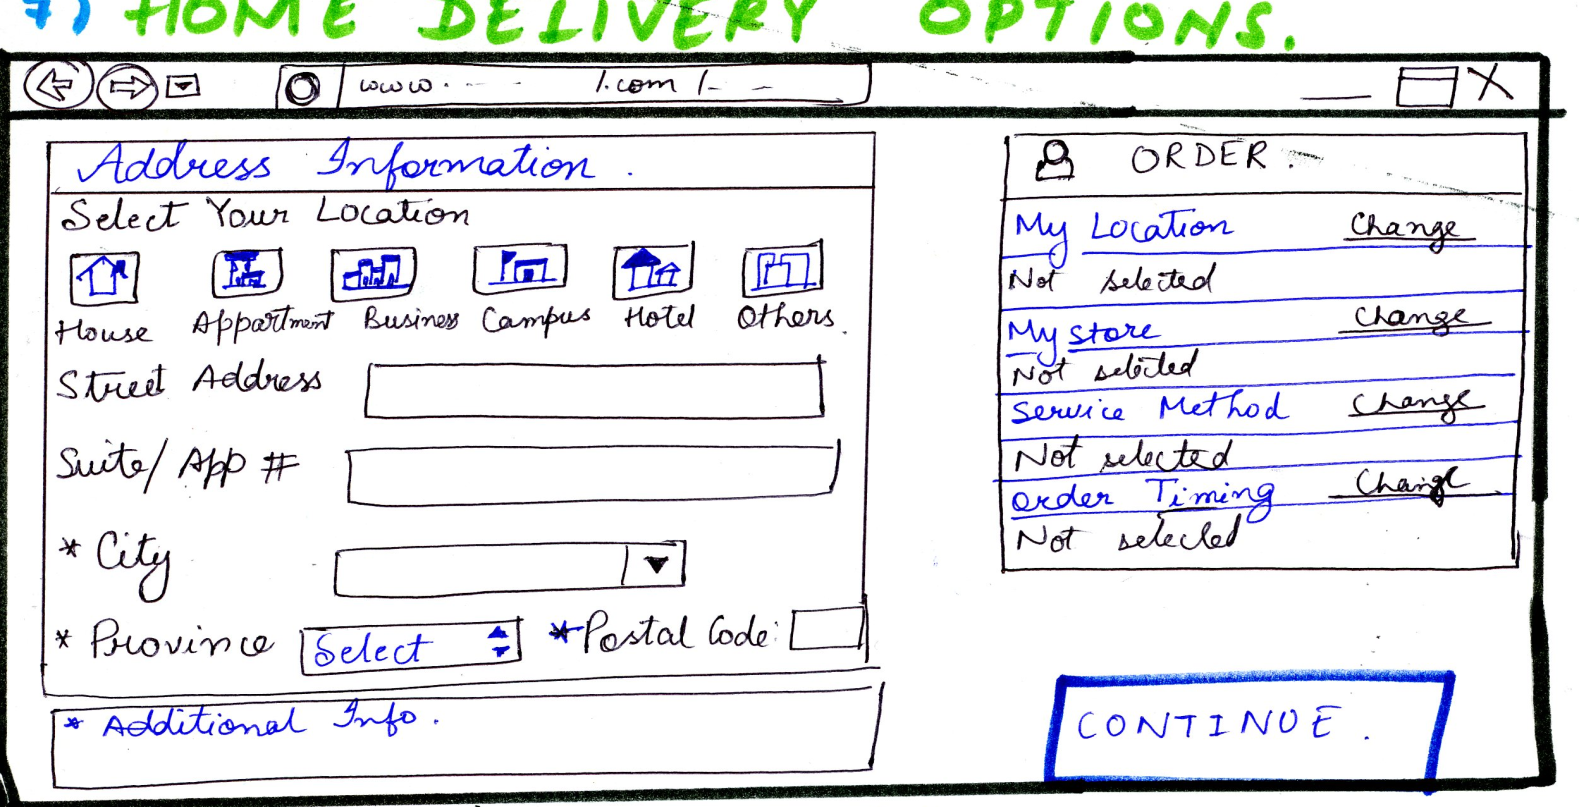 7) HOME DELIVERY OPTIONS.
www. ---- /.com /- -
X
Address Information.
Select Your Location
House Appartment Business Campus Hotel Others.
Street Address
Suite/App #
* City
* Province Select *Postal Code:
* Additional Info.
ORDER.
My Location Change
Not selected
My store Change
Not selected
Service Method Change
Not selected
Order Timing Change
Not selected
CONTINUE.